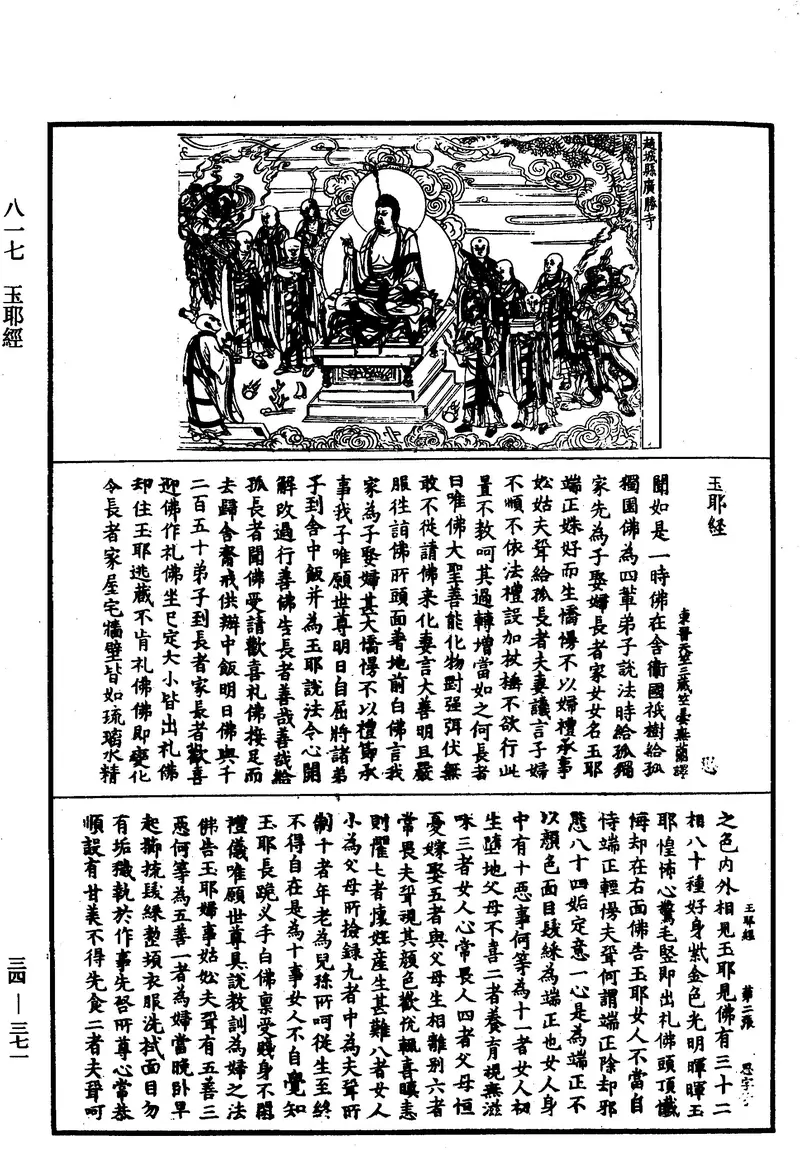 八一七　玉耶經
三四—三七一
趙城縣廣勝寺
玉耶經
東晉天竺三藏竺曇無蘭譯
聞如是一時佛在舍衛國祇樹給孤
獨園佛為四輩弟子說法時給孤獨
家先為子娶婦長者家女女名玉耶
端正姝好而生憍慢不以婦禮承事
妐姑夫聟給孤長者夫妻議言子婦
不順不依法禮設加杖捶不欲行此
置不教呵其過轉增當如之何長者
曰唯佛大聖善能化物對强弭伏無
敢不従請佛来化妻言大善明旦嚴
服往詣佛所頭面著地前白佛言我
家為子娶婦甚大憍慢不以禮節承
事我子唯願世尊明日自屈將諸弟
子到舍中飯并為玉耶說法令心開
解改過行善佛告長者善哉善哉給
孤長者聞佛受請歡喜礼佛接足而
去歸舍齋戒供辦中飯明日佛與千
二百五十弟子到長者家長者歡喜
迎佛作礼佛坐已定大小皆出礼佛
却住玉耶逃藏不肯礼佛佛即變化
令長者家屋宅牆壁皆如琉璃水精
玉耶經　第二張
之色內外相見玉耶見佛有三十二
相八十種好身紫金色光明暉暉玉
耶惶怖心驚毛竪即出礼佛頭頂懺
悔却在右面佛告玉耶女人不當自
恃端正輕慢夫聟何謂端正除却邪
態八十四姤定意一心是為端正不
以顏色面目髮綵為端正也女人身
中有十惡事何等為十一者女人初
生墮地父母不喜二者養育視無滋
味三者女人心常畏人四者父母恒
憂嫁娶五者與父母生相離別六者
常畏夫聟視其顏色歡恱輒喜瞋恚
則懼七者懷妊產生甚難八者女人
小為父母所撿錄九者中為夫聟所
制十者年老為兒孫所呵從生至終
不得自在是為十事女人不自覺知
玉耶長跪叉手白佛禀受賤身不閑
禮儀唯願世尊具說教訓為婦之法
佛告玉耶婦事妐姑夫聟有五善三
惡何等為五善一者為婦當晚卧早
起擳梳髮綵整頓衣服洗拭面目勿
有垢穢執於作事先啓所尊心常恭
順設有甘美不得先食二者夫聟呵